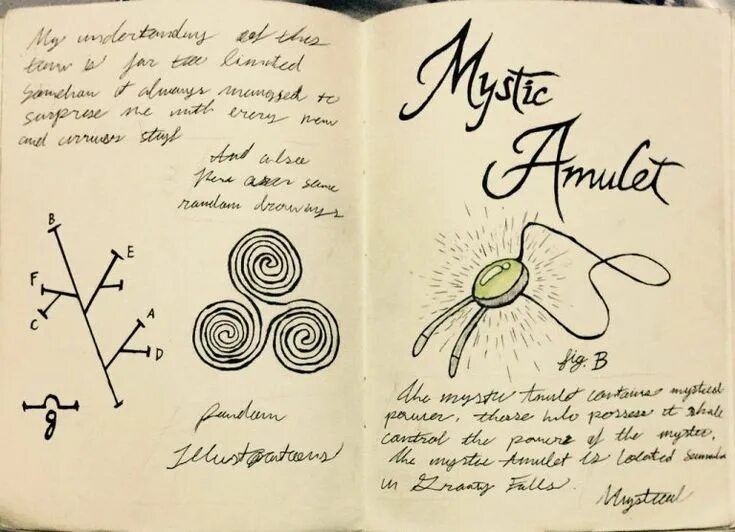 My understanding of this
town is far too limited
Somehow it always managed to
surprise me with every new
and
And also
here are some
random drawings
B
E
F
C
A
D
g
Random
Illustrations
Mystic
Amulet
fig. B
The mystic Amulet contains mystical
power, those who possess it shall
control the power of the mystic.
The mystic Amulet is located
in Gravity Falls.
Mystical